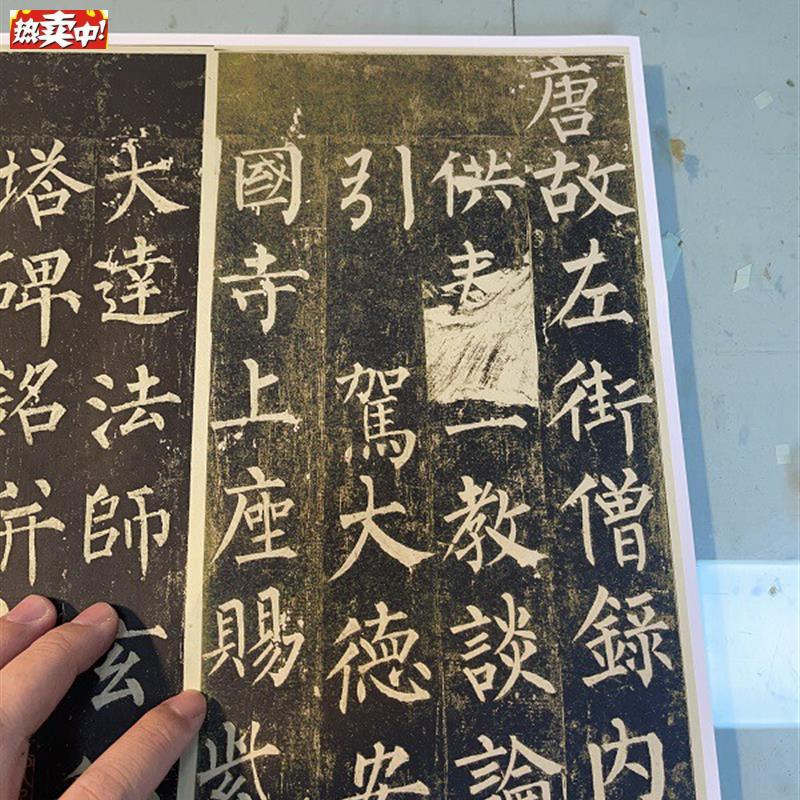 热卖中!
唐故左街僧錄内
供教談論
引駕大德安
國寺上座賜紫
大達法師玄
塔碑銘并